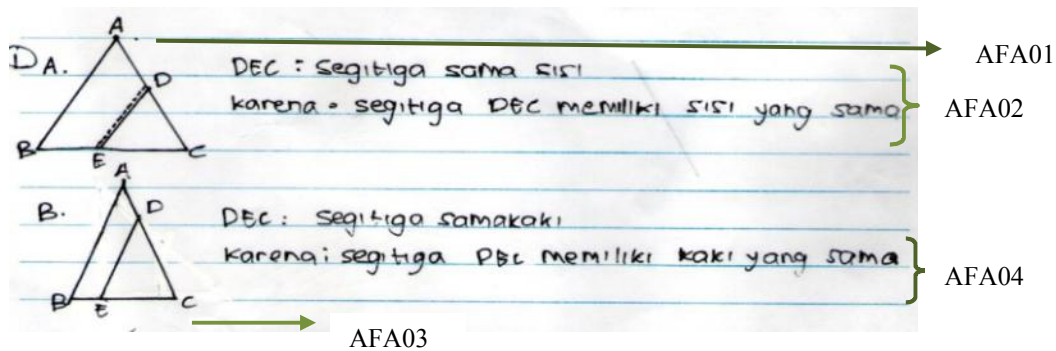 A
AFA01
1) A.
D
DEC : segitiga sama sisi
karena = segitiga DEC memiliki sisi yang sama
AFA02
B E C
A
B.
D
DEC : segitiga samakaki
karena : segitiga DEC memiliki kaki yang sama
AFA04
B E C
AFA03